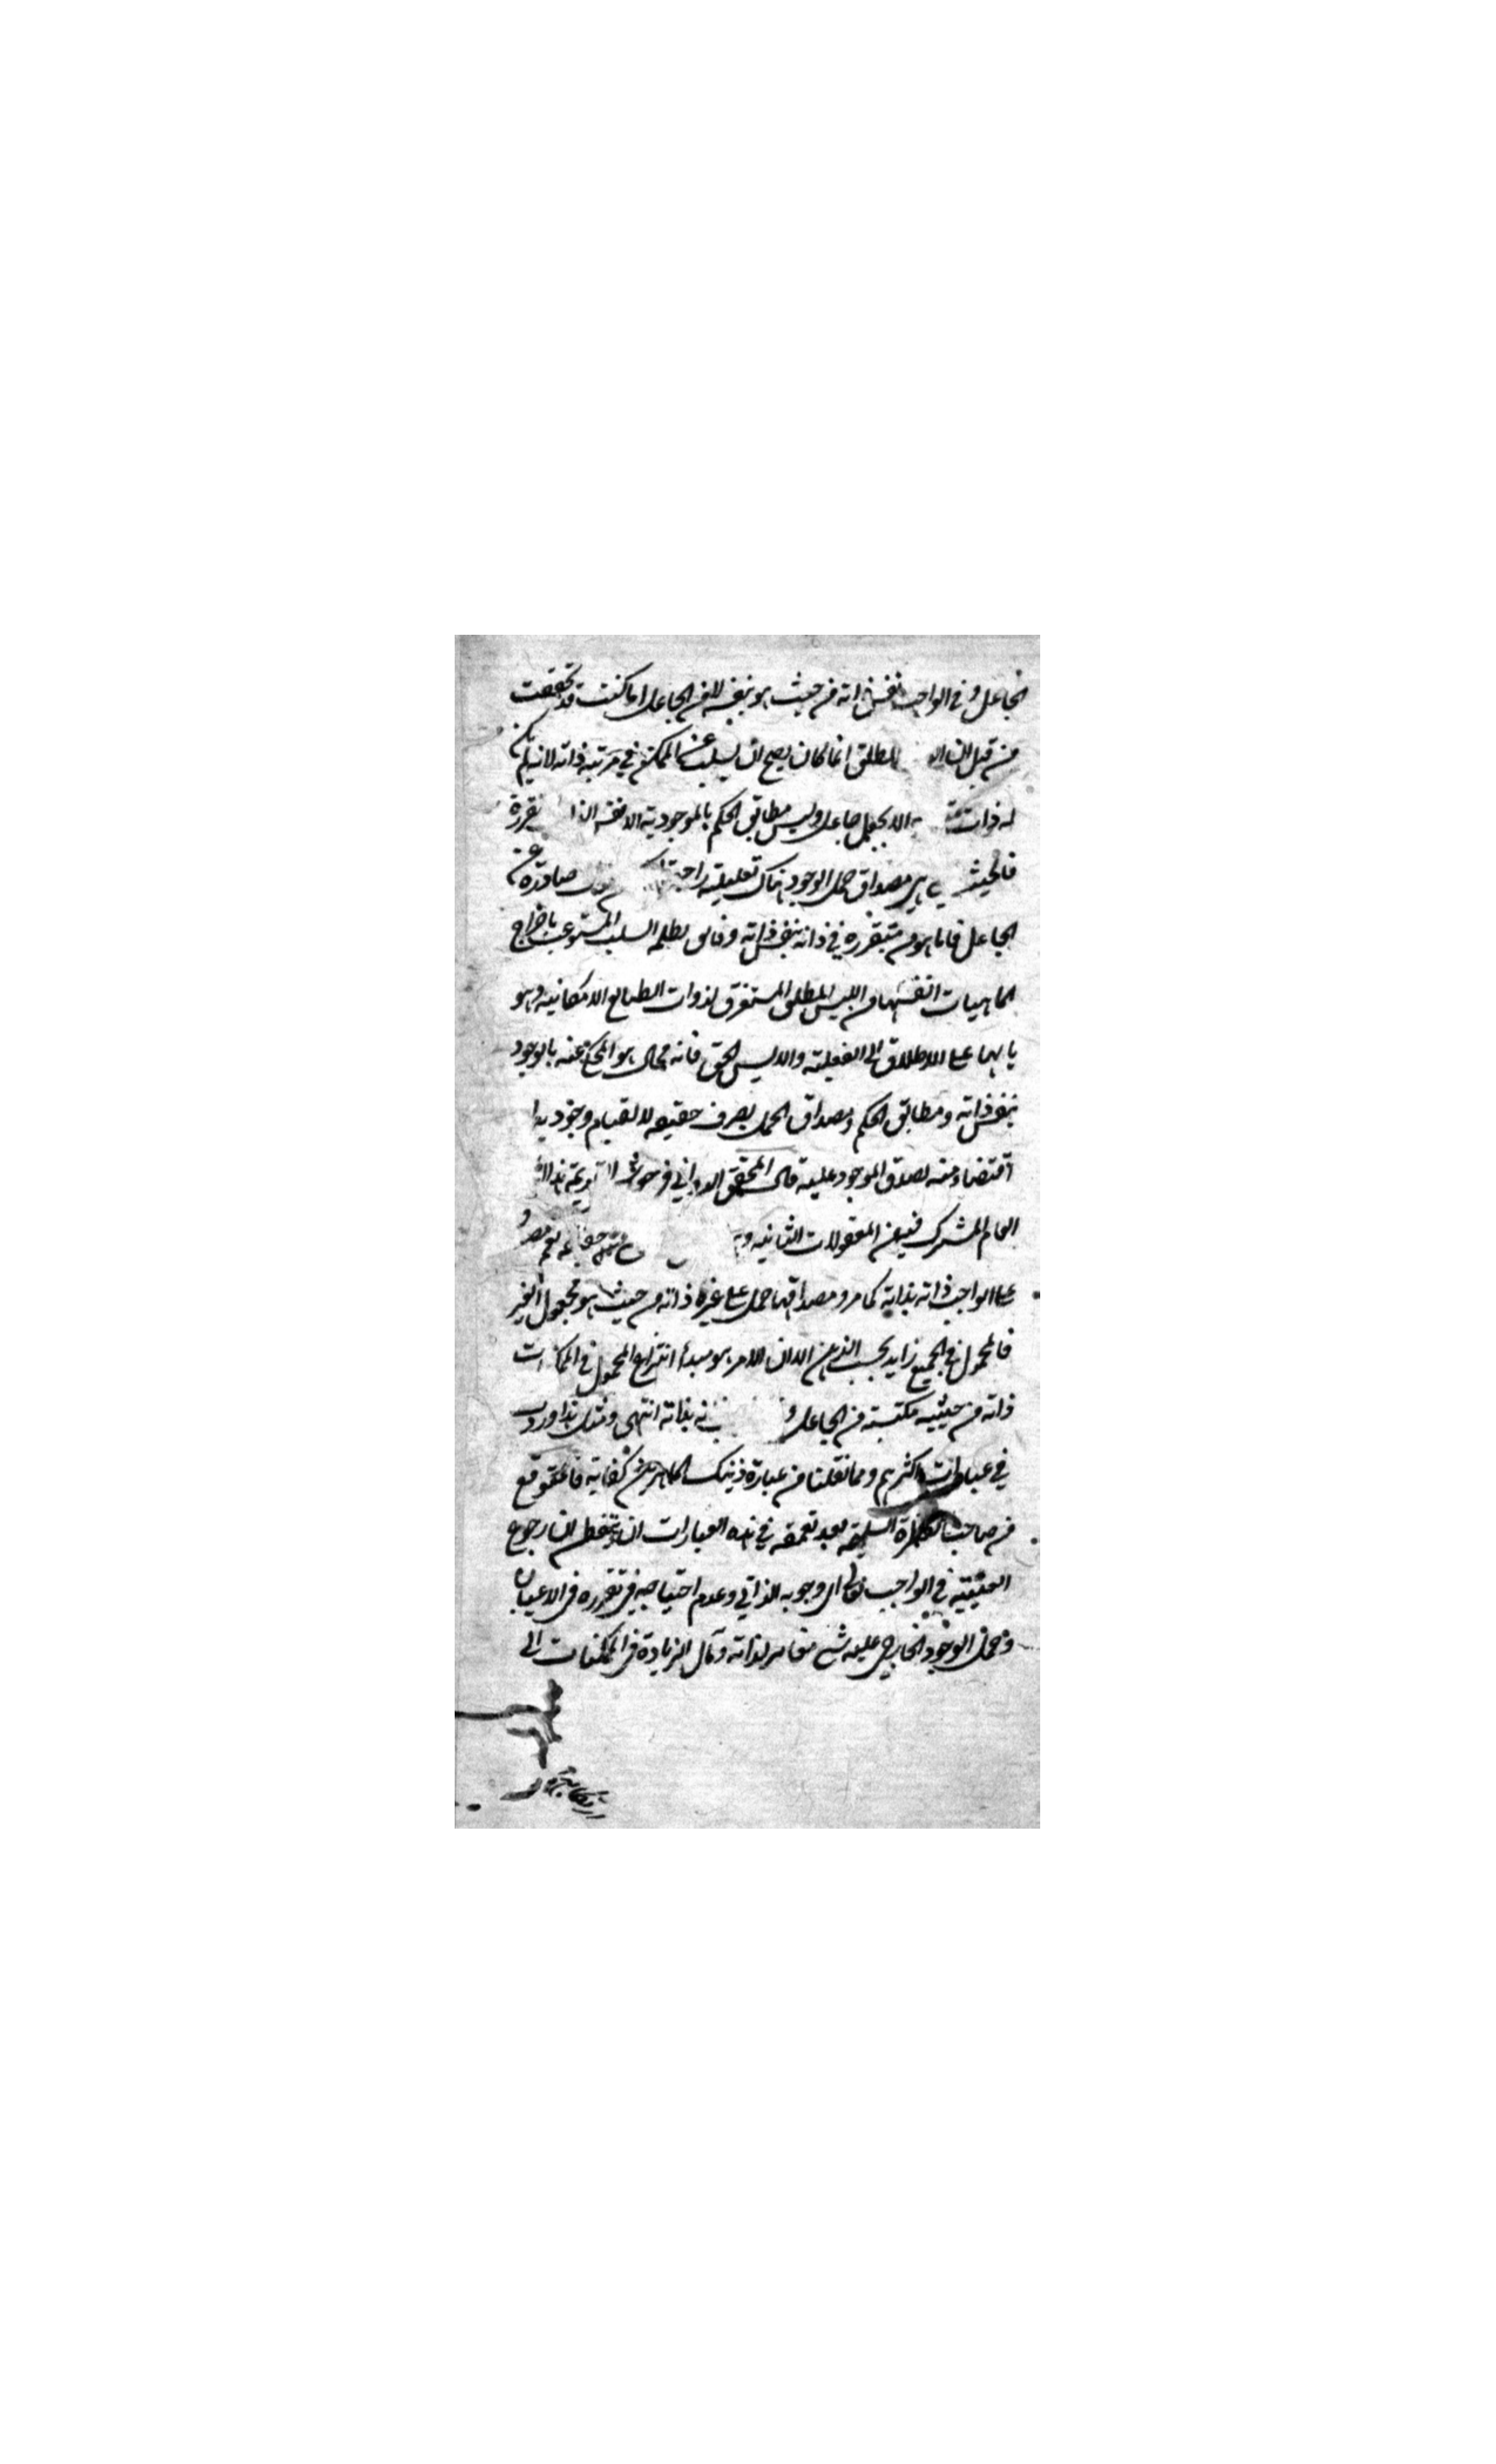 الجاعل وفي الواجب نفس ذاته من حيث هو بنفسه لا من الجاعل اما كنت قد تحققت
من قبل ان المطلق انما كان يصح ان يسلب عن الممكن في مرتبة ذاته لانه لم يكن
له ذات الا بجعل جاعل وليس مطابق الحكم بالموجودية الا نفس
هي مصداق حمل الوجود هناك تعليلية صادرة عن
الجاعل فاما هو متقررة في ذاته بنفس ذاته وفالق ظلمة السلب المستوعب باخراج
الماهيات انفسها من الليس المطلق المستغرق لذوات الطبايع الامكانية وهو
على الاطلاق الى الفعلية والايس الحق فانه محال هو المحكي عنه بالوجود
بنفس ذاته ومطابق الحكم ومصداق الحمل بصرف حقيقته لا لقيام وجود به او
اقتضاء منه لصدق الموجود عليه قال المحقق الدواني في حواشي هذا
العام المشترك فيه من المعقولات الثانية
على الواجب ذاته بذاته كما مر ومصداق حمله على غيره ذاته من حيث هو مجعول الغير
فالمحمول في الجميع زايد بحسب الذهن الا ان الامر هو مبدأ انتزاع المحمول في الممكنات
ذاته من حيثية مكتسبة من الجاعل بذاته انتهى ومثل هذا ورد
في عبارات اكثرهم ومما نقلنا من عبارة ذينك الماهرين كفاية فالمتوقع
من صاحب الفطرة السليمة بعد تعمقه في هذه العبارات ان يتفطن ان رجوع
العينية في الواجب تعالى الى وجوبه الذاتي وعدم احتياجه في تقرره في الاعيان
وحمل الوجود الخارجي عليه شيء مغاير لذاته ومآل الزيادة في الممكنات الى